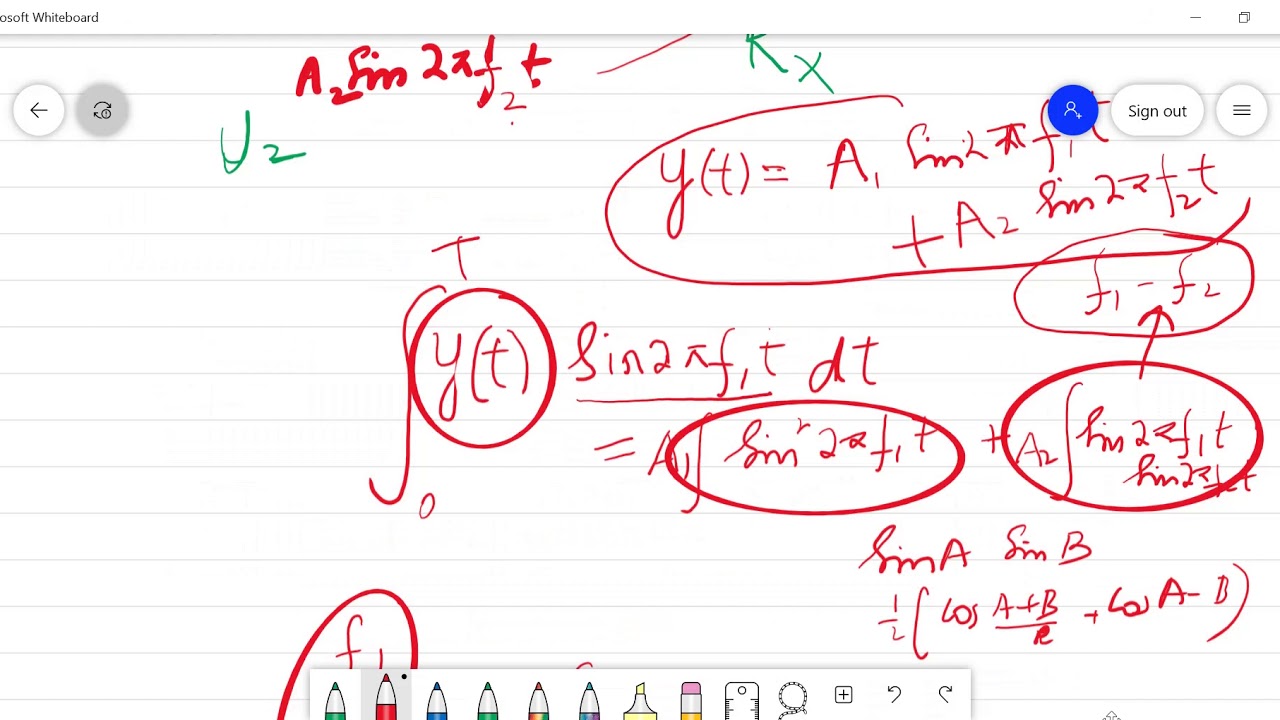 osoft Whiteboard
A₂ sin 2πf₂t
Rx
U₂
Sign out
y(t) = A₁ sin 2πf₁t
+ A₂ sin 2πf₂t
f₁ - f₂
T
∫ y(t) sin 2πf₁t dt
0
= A₁∫ sin² 2πf₁t + A₂∫ sin 2πf₁t
sin 2πf₂t
sin A sin B
½ [ cos A+B + cos A-B )
f₁